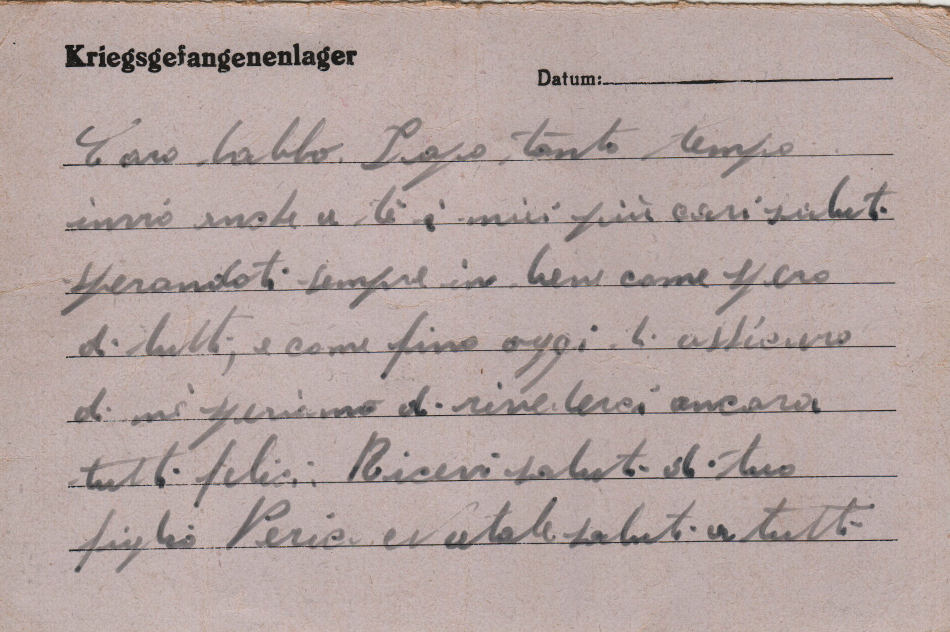 Kriegsgefangenenlager
Datum:
Caro babbo. Dopo tanto tempo
invio anche a te i miei più cari saluti
sperandoti sempre in bene come spero
di tutti, e come fino oggi ti assicuro
di mè speriamo di rivederci ancora
tutti felici. Ricevi saluti di tuo
figlio e Natale saluti a tutti